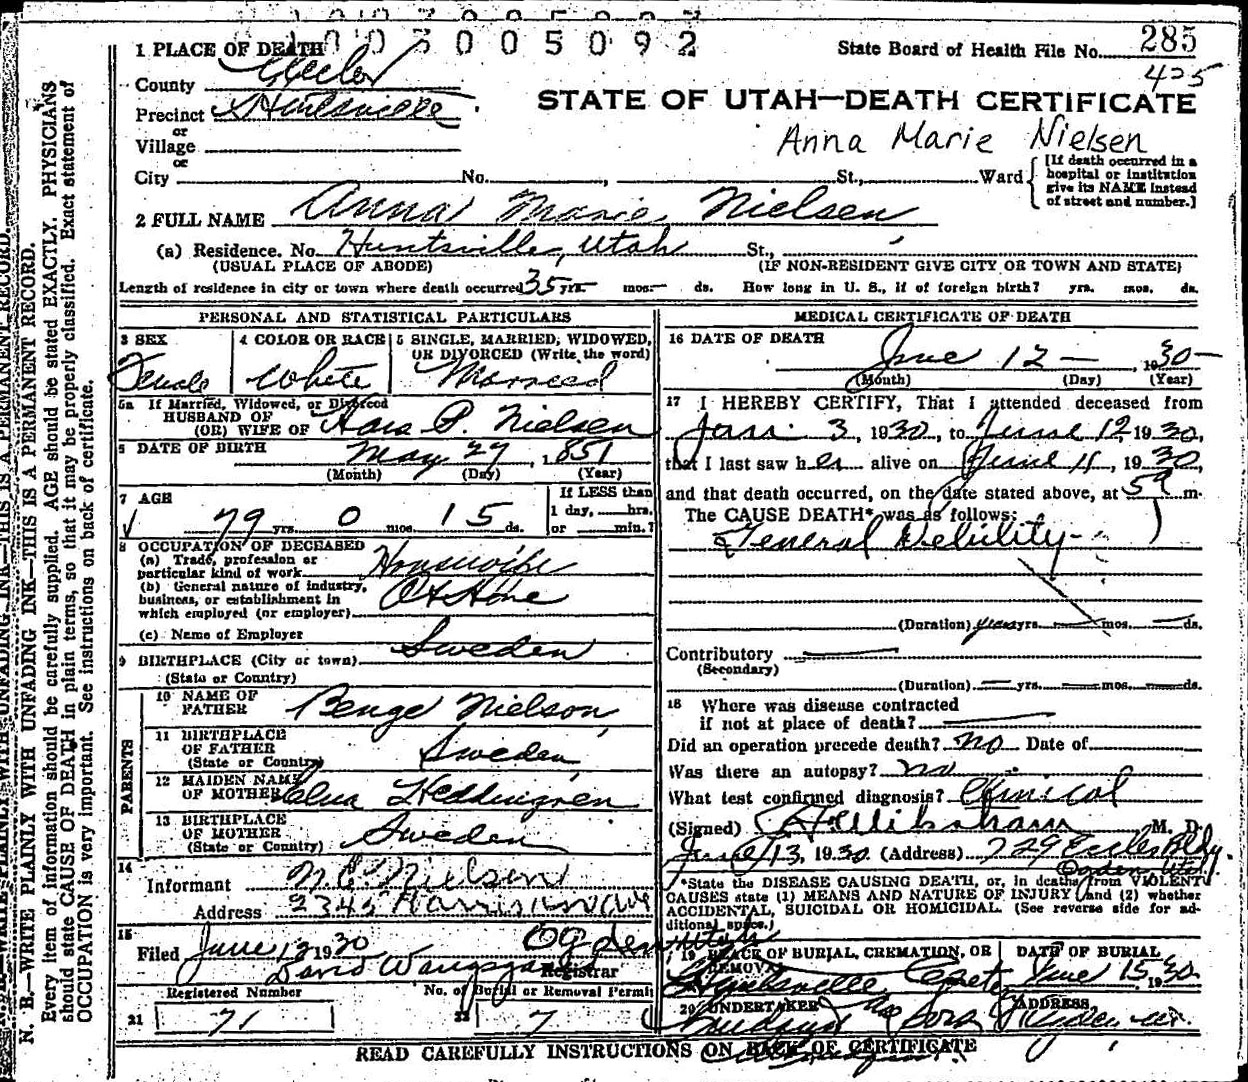 1003005092
1 PLACE OF DEATH
State Board of Health File No. 285
425
County Weber
Precinct Huntsville
or
Village
or
STATE OF UTAH—DEATH CERTIFICATE
Anna Marie Nielsen
City No. , St., Ward
[If death occurred in a hospital or institution give its NAME instead of street and number.]
2 FULL NAME Anna Marie Nielsen
(a) Residence. No. Huntsville, Utah St.,
(USUAL PLACE OF ABODE) (IF NON-RESIDENT GIVE CITY OR TOWN AND STATE)
Length of residence in city or town where death occurred 35 yrs. — mos. — ds. How long in U. S., if of foreign birth? yrs. mos. ds.
PERSONAL AND STATISTICAL PARTICULARS
3 SEX
Female
4 COLOR OR RACE
White
5 SINGLE, MARRIED, WIDOWED,
OR DIVORCED (Write the word)
Married
5a If Married, Widowed, or Divorced
HUSBAND OF
(OR) WIFE OF P. Nielsen
6 DATE OF BIRTH May 27, 1851
(Month) (Day) (Year)
7 AGE
79 yrs. 0 mos. 15 ds.
If LESS than
1 day, hrs.
or min.?
8 OCCUPATION OF DECEASED
(a) Trade, profession or
particular kind of work Housewife
(b) General nature of industry,
business, or establishment in
which employed (or employer) At Home
(c) Name of Employer
9 BIRTHPLACE (City or town) Sweden
(State or Country)
PARENTS
10 NAME OF
FATHER Nielson
11 BIRTHPLACE
OF FATHER Sweden
(State or Country)
12 MAIDEN NAME
OF MOTHER
13 BIRTHPLACE
OF MOTHER Sweden
(State or Country)
14
Informant N. C. Nielson
Address 2345 Harrison Ave
Ogden Utah
15
Filed June 1930
David Registrar
Registered Number
No. of Burial or Removal Permit
21 71
22 7
MEDICAL CERTIFICATE OF DEATH
16 DATE OF DEATH
June 12 — , 1930—
(Month) (Day) (Year)
17 I HEREBY CERTIFY, That I attended deceased from
Jan. 3, 1930, to June 12 1930,
that I last saw her alive on June 11, 1930,
and that death occurred, on the date stated above, at m.
The CAUSE DEATH* was as follows:
General Debility
(Duration) years yrs. — mos. — ds.
Contributory
(Secondary)
(Duration) — yrs. — mos. — ds.
18 Where was disease contracted
if not at place of death?
Did an operation precede death? no Date of
Was there an autopsy? no
What test confirmed diagnosis? Clinical
(Signed) M. D.
June 13, 1930 (Address) 729 Eccles Bldg.
Ogden Utah
*State the DISEASE CAUSING DEATH, or, in deaths from VIOLENT
CAUSES state (1) MEANS AND NATURE OF INJURY and (2) whether
ACCIDENTAL, SUICIDAL OR HOMICIDAL. (See reverse side for ad-
ditional space.)
19 PLACE OF BURIAL, CREMATION, OR
REMOVAL
Huntsville
DATE OF BURIAL
June 15 1930
20 UNDERTAKER
ADDRESS
Ogden
READ CAREFULLY INSTRUCTIONS ON BACK OF CERTIFICATE
N. B.—WRITE PLAINLY WITH UNFADING INK—THIS IS A PERMANENT RECORD.
Every item of information should be carefully supplied. AGE should be stated EXACTLY. PHYSICIANS
should state CAUSE OF DEATH in plain terms, so that it may be properly classified. Exact statement of
OCCUPATION is very important. See instructions on back of certificate.